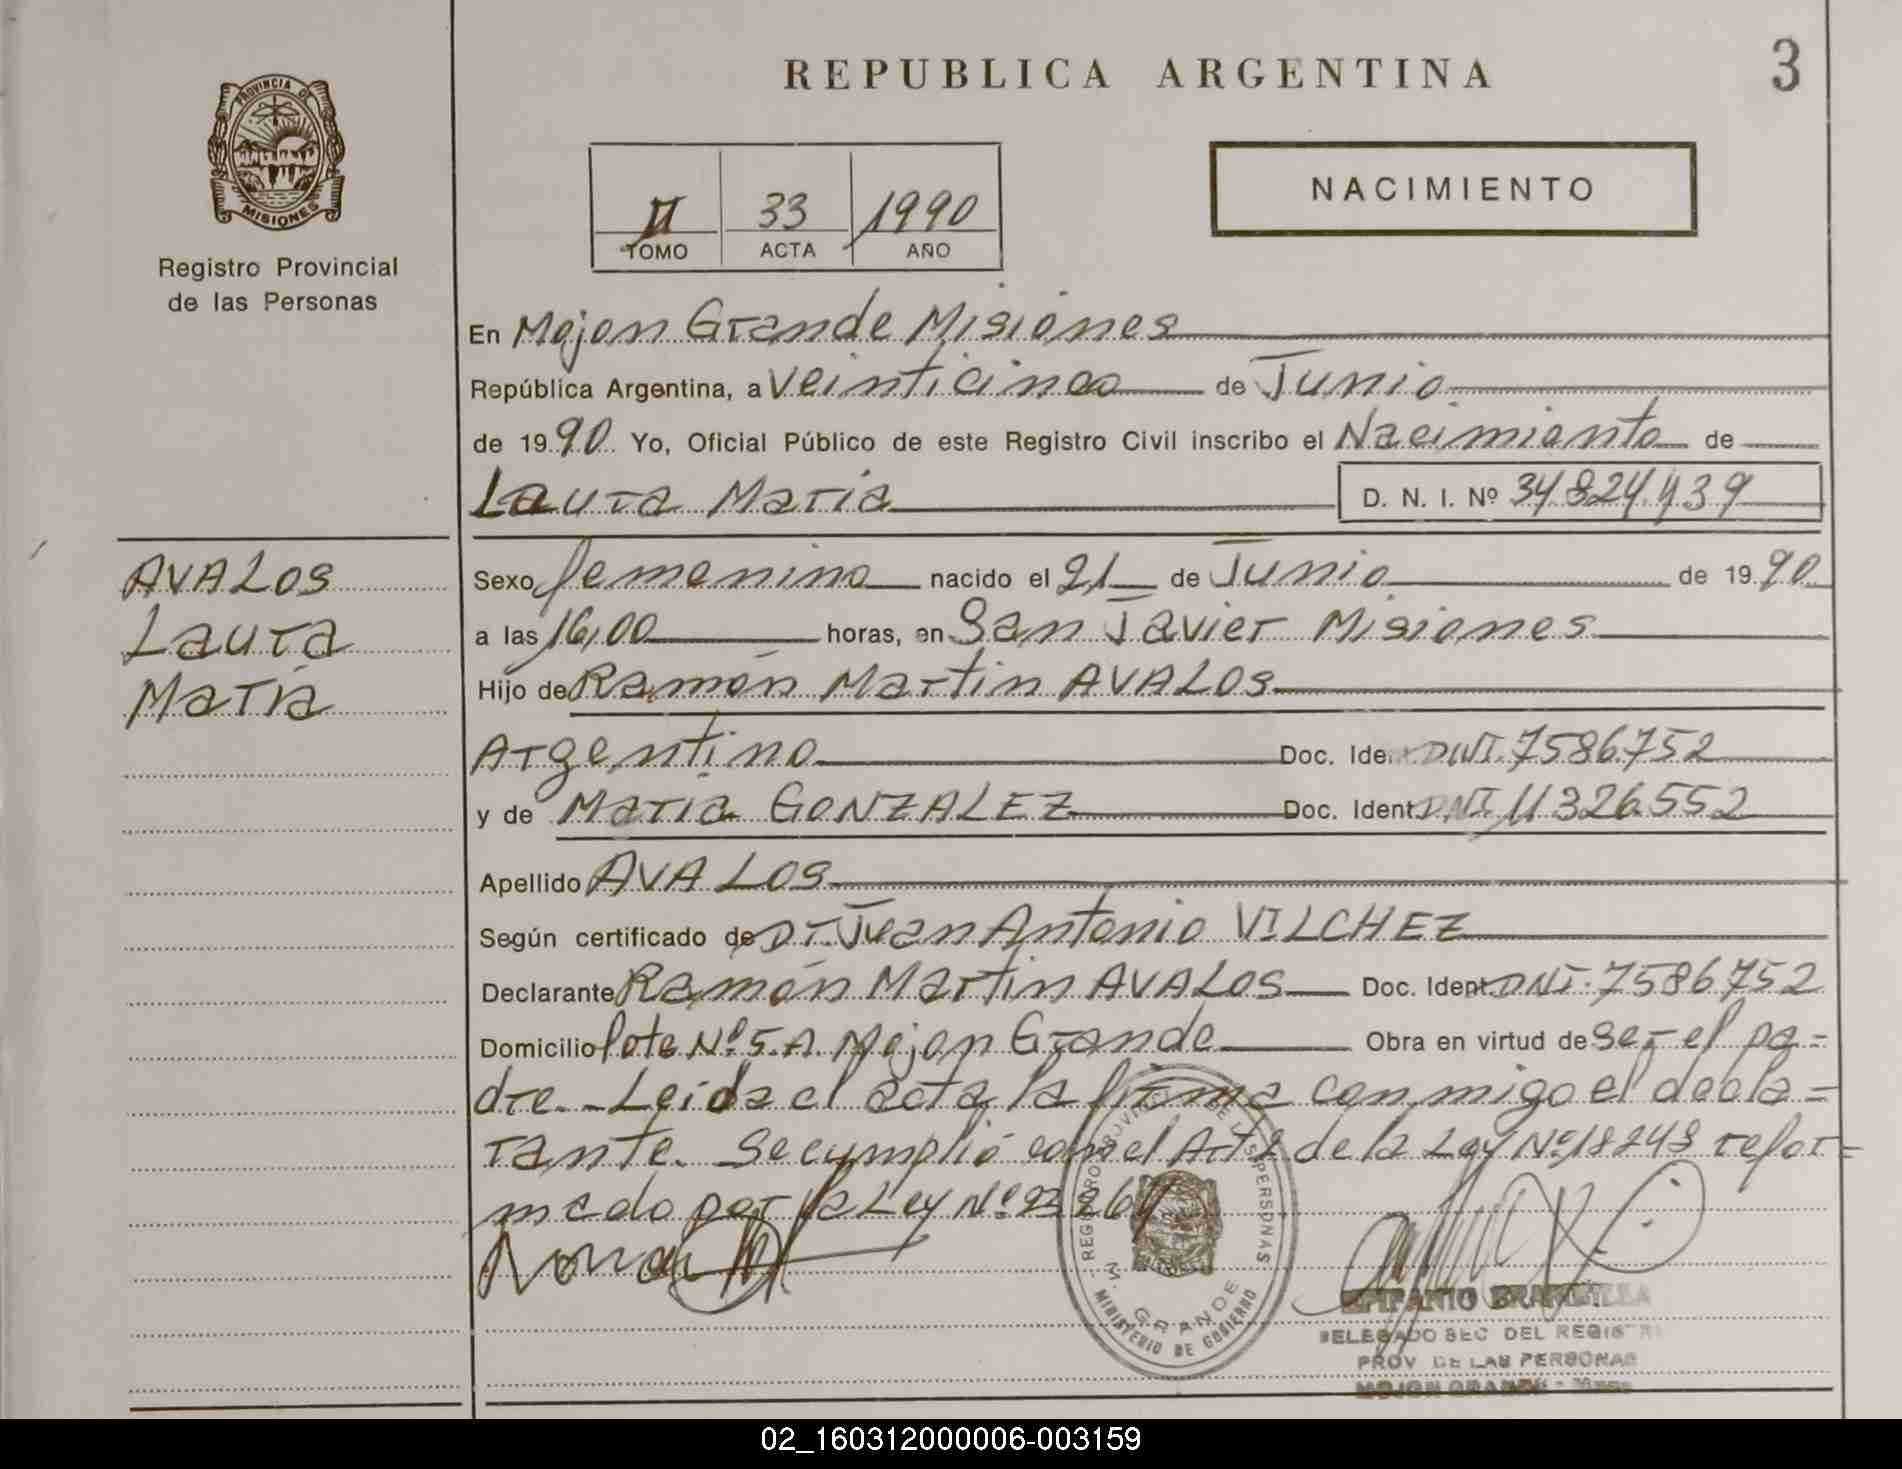 REPUBLICA ARGENTINA
3
PROVINCIA DE
MISIONES
Registro Provincial
de las Personas
II 33 1990
TOMO ACTA AÑO
NACIMIENTO
En Mojon Grande Misiones
República Argentina, a Veinticinco de Junio
de 1990 Yo, Oficial Público de este Registro Civil inscribo el Nacimiento de
Laura Maria D. N. I. Nº 34.824.439
AVALOS
Laura
Maria
Sexo femenino nacido el 21 de Junio de 1990
a las 16,00 horas, en San Javier Misiones
Hijo de Ramón Martin AVALOS
Argentino Doc. Ident DNI. 7586.752
y de Maria GONZALEZ Doc. Ident DNI. 11.326.552
Apellido AVALOS
Según certificado de Dr. Juan Antonio VILCHEZ
Declarante Ramón Martin AVALOS Doc. Ident DNI. 7586752
Domicilio lote Nº 5.A. Mojon Grande Obra en virtud de Ser el pa=
dre.- Leída el acta la firma conmigo el decla=
rante. Se cumplió con el Art de la Ley Nº 18248 refor=
mado por la Ley Nº 23264
REGISTRO PROVINCIAL DE LAS PERSONAS
M. GRANDE
MINISTERIO DE GOBIERNO
DELEGADO SEC DEL REGISTRO
PROV DE LAS PERSONAS
MOJON GRANDE - Mnes
02_160312000006-003159